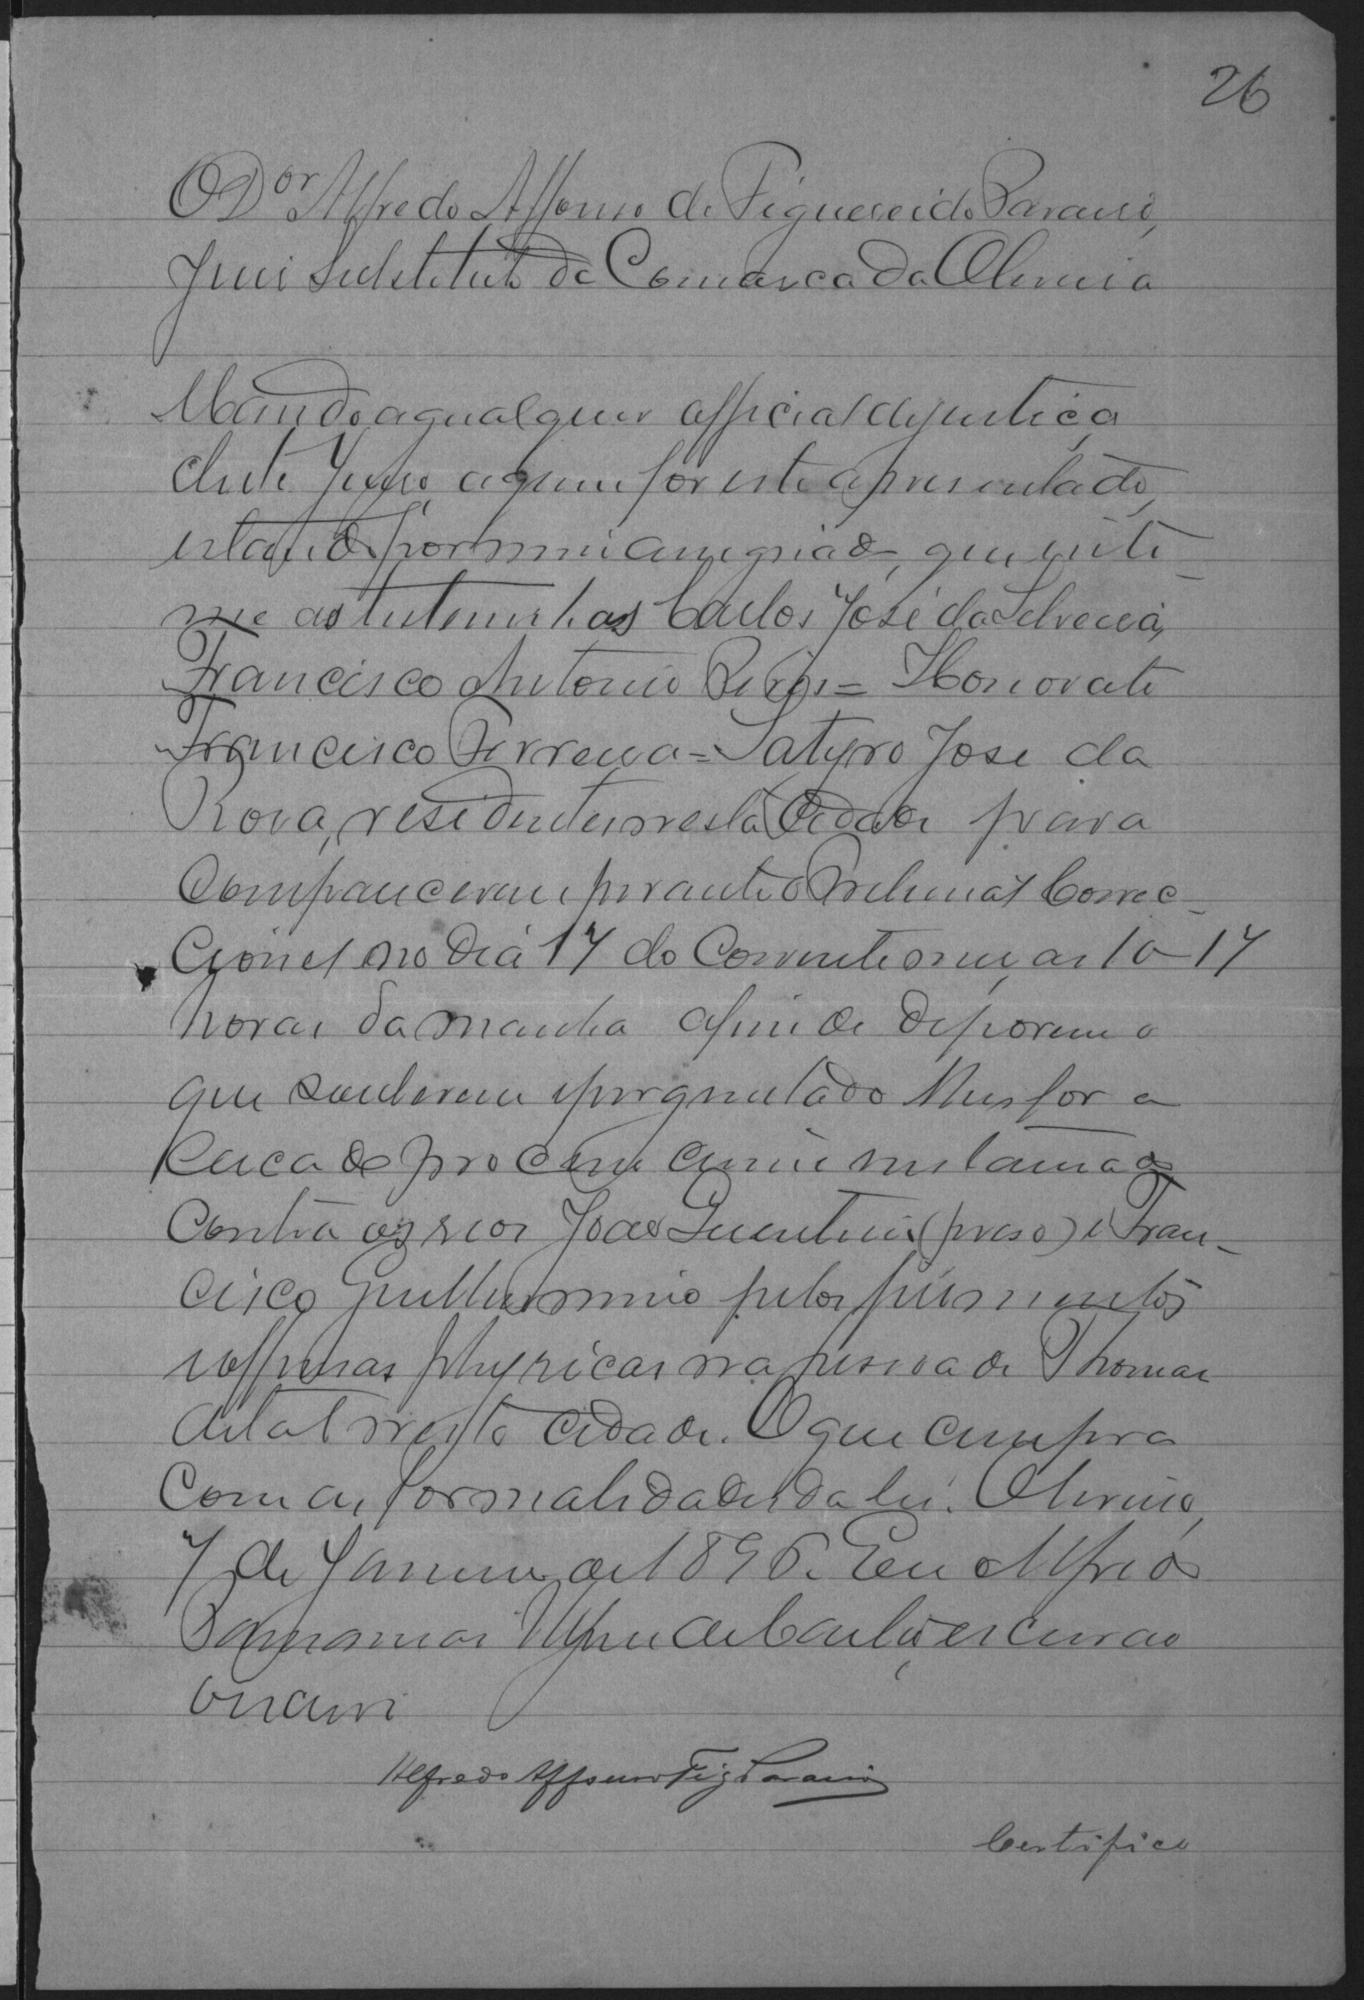 26
O Dor Alfredo Affonso de Figueireido Paraiso,
Juiz Substituto da Comarca da Oliveira
Mando a qualquer official de justiça
deste Juiso, a quem for este apresentado,
estando por mim assignado, que inti-
me as testemunhas Carlos José da Silveira,
Francisco Antonio Pires = Honorato
Francisco Ferreira = Satyro José da
Rosa, residentes nesta Cidade para
comparecerem perante o Tribunal Correc-
cional no dia 17 do Corrente mez, as 10 17
horas da manha afim de deporem o
que souberem e perguntado lhes for a
cerca do processo crime instaurado
contra os reos João Quintino (preso) e Fran-
cisco Guilhermino pelos ferimentos
e offensas physicas na pessoa de Thomas
de tal nesta cidade. O que cumpra
com as formalidades da lei. Oliveira,
7 de Janeiro de 1896. Eu Alfredo
de Castro, escrivão
escrevi
Alfredo Affonso Fig Paraiso
Certifico